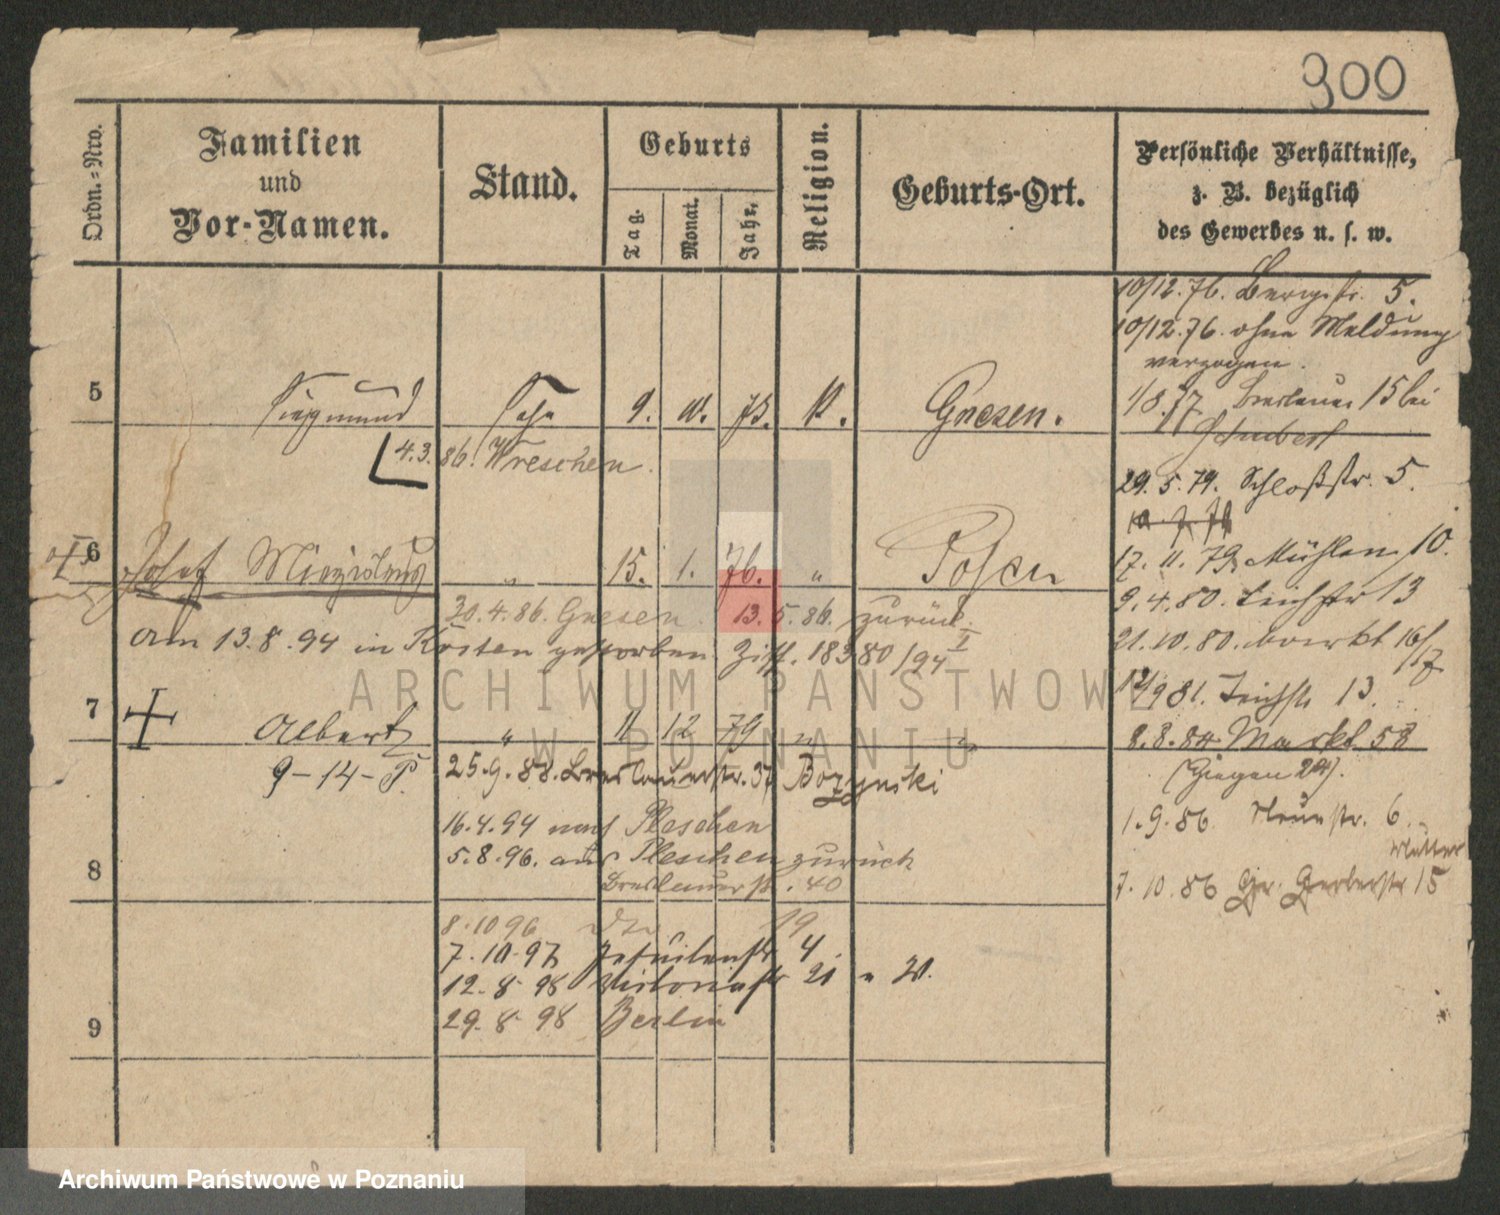 900
Ordn.-Nro.
Familien
und
Vor-Namen.
Stand.
Geburts
Tag.
Monat.
Jahr.
Religion.
Geburts-Ort.
Persönliche Verhältnisse,
z. B. bezüglich
des Gewerbes u. s. w.
10/12.76. Bergstr. 5.
10/12.76. ohne Meldung
verzogen.
5 Siegmund Sohn 9. 10. 73. K. Gnesen.
1/8.77 Breslauer 15 bei
Schubert
4.3.86. Wreschen.
29.5.79. Schloßstr. 5.
6 Josef " 15. 1. 76. " Posen
17.11.79. Mühlen 10.
30.4.86. Gnesen. 13.5.86. zurück
9.4.80. Teichstr 13
am 13.8.94 in Kosten gestorben Ziff. 18380/94 I
21.10.80. Markt 16/17
12/9 81. Teichstr 13.
7 Albert " 11 12 79 " "
8.8.84 Markt 58
9-14-P.
25.9.88. Breslauerstr. 37 Bozynski
1.9.86 Neuestr. 6.
Mutter
16.4.94 nach Pleschen
5.8.96. aus Pleschen zurück
8 Breslauerstr. 40
7.10.86 Gr. Gerberstr 15
8.10 96 19
7.10.97 Jesuitenstr 4
12.8.98 Victoriastr 21
29.8.98 Berlin
9
ARCHIWUM PAŃSTWOW
W POZNANIU
Archiwum Państwowe w Poznaniu